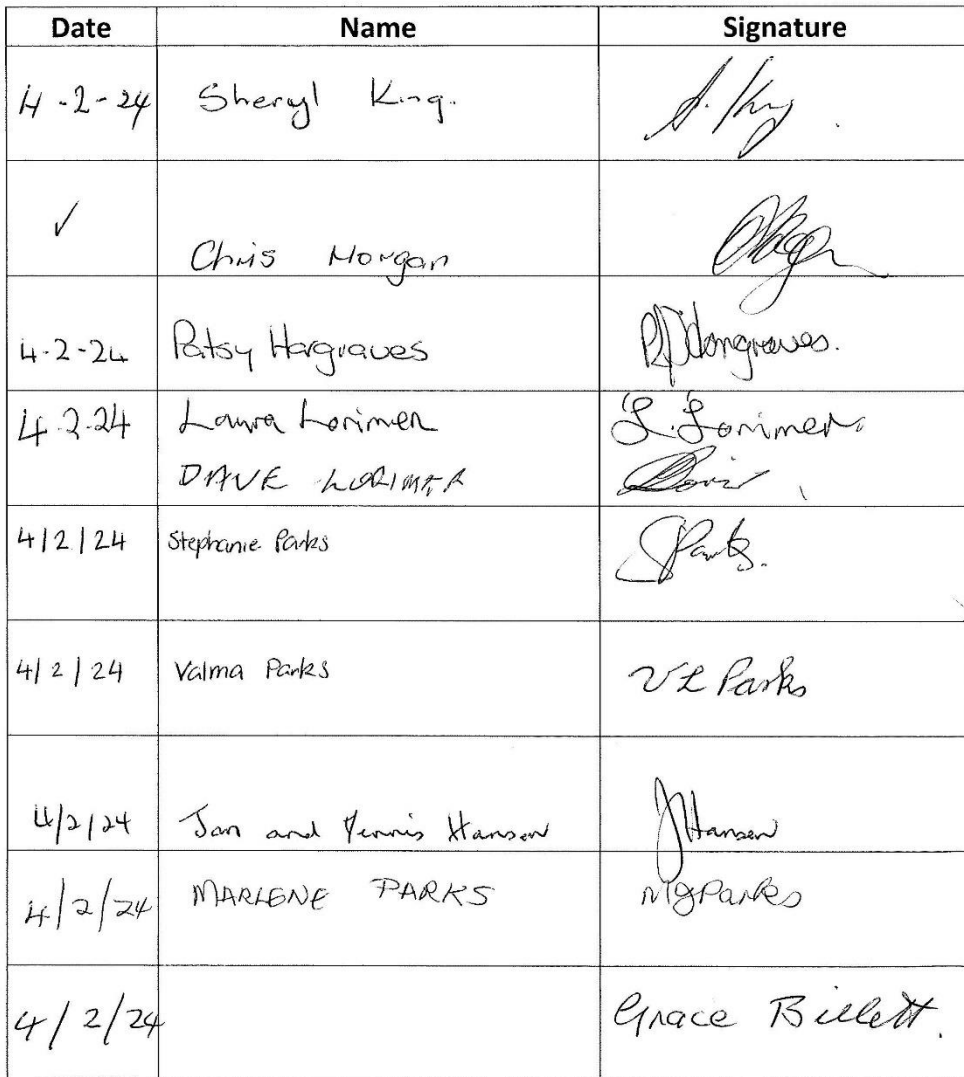 Date Name Signature
4-2-24 Sheryl King. S. King.
✓ Chris Morgan
4-2-24 Patsy Hargraves Hargraves.
4-2-24 Laura Lorimer L. Lorimer.
DAVE LORIMER
4/2/24 Stephanie Parks SParks.
4/2/24 Valma Parks VL Parks
4/2/24 Jan and Dennis Hansen J Hansen
4/2/24 MARLENE PARKS MJParks
4/2/24 Grace Billett.